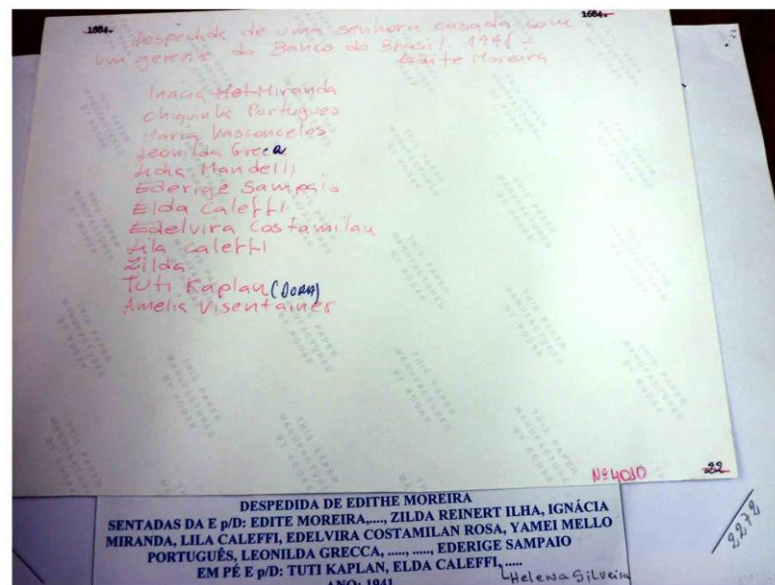 1684.
1684.
despedida de uma senhora casada com
um gerente do Banco do Brasil. 1941 -
Edite Moreira
Inacia Het Miranda
chiquinha Portugues
Maria Vasconcelos
Leonilda Greca
Mandelli
Ederige Sampaio
Elda Caleffi
Edelvira Costamilan
Lila Caleffi
Zilda
Tuti Kaplan (DORA)
Amelia Visentainer
THIS PAPER
MANUFACTURED
BY KODAK
Nº 4010
22
DESPEDIDA DE EDITHE MOREIRA
SENTADAS DA E p/D: EDITE MOREIRA,...., ZILDA REINERT ILHA, IGNÁCIA
MIRANDA, LILA CALEFFI, EDELVIRA COSTAMILAN ROSA, YAMEI MELLO
PORTUGUÊS, LEONILDA GRECCA, ....., ....., EDERIGE SAMPAIO
EM PÉ E p/D: TUTI KAPLAN, ELDA CALEFFI, .....
Helena Silveira
ANO: 1941
2272